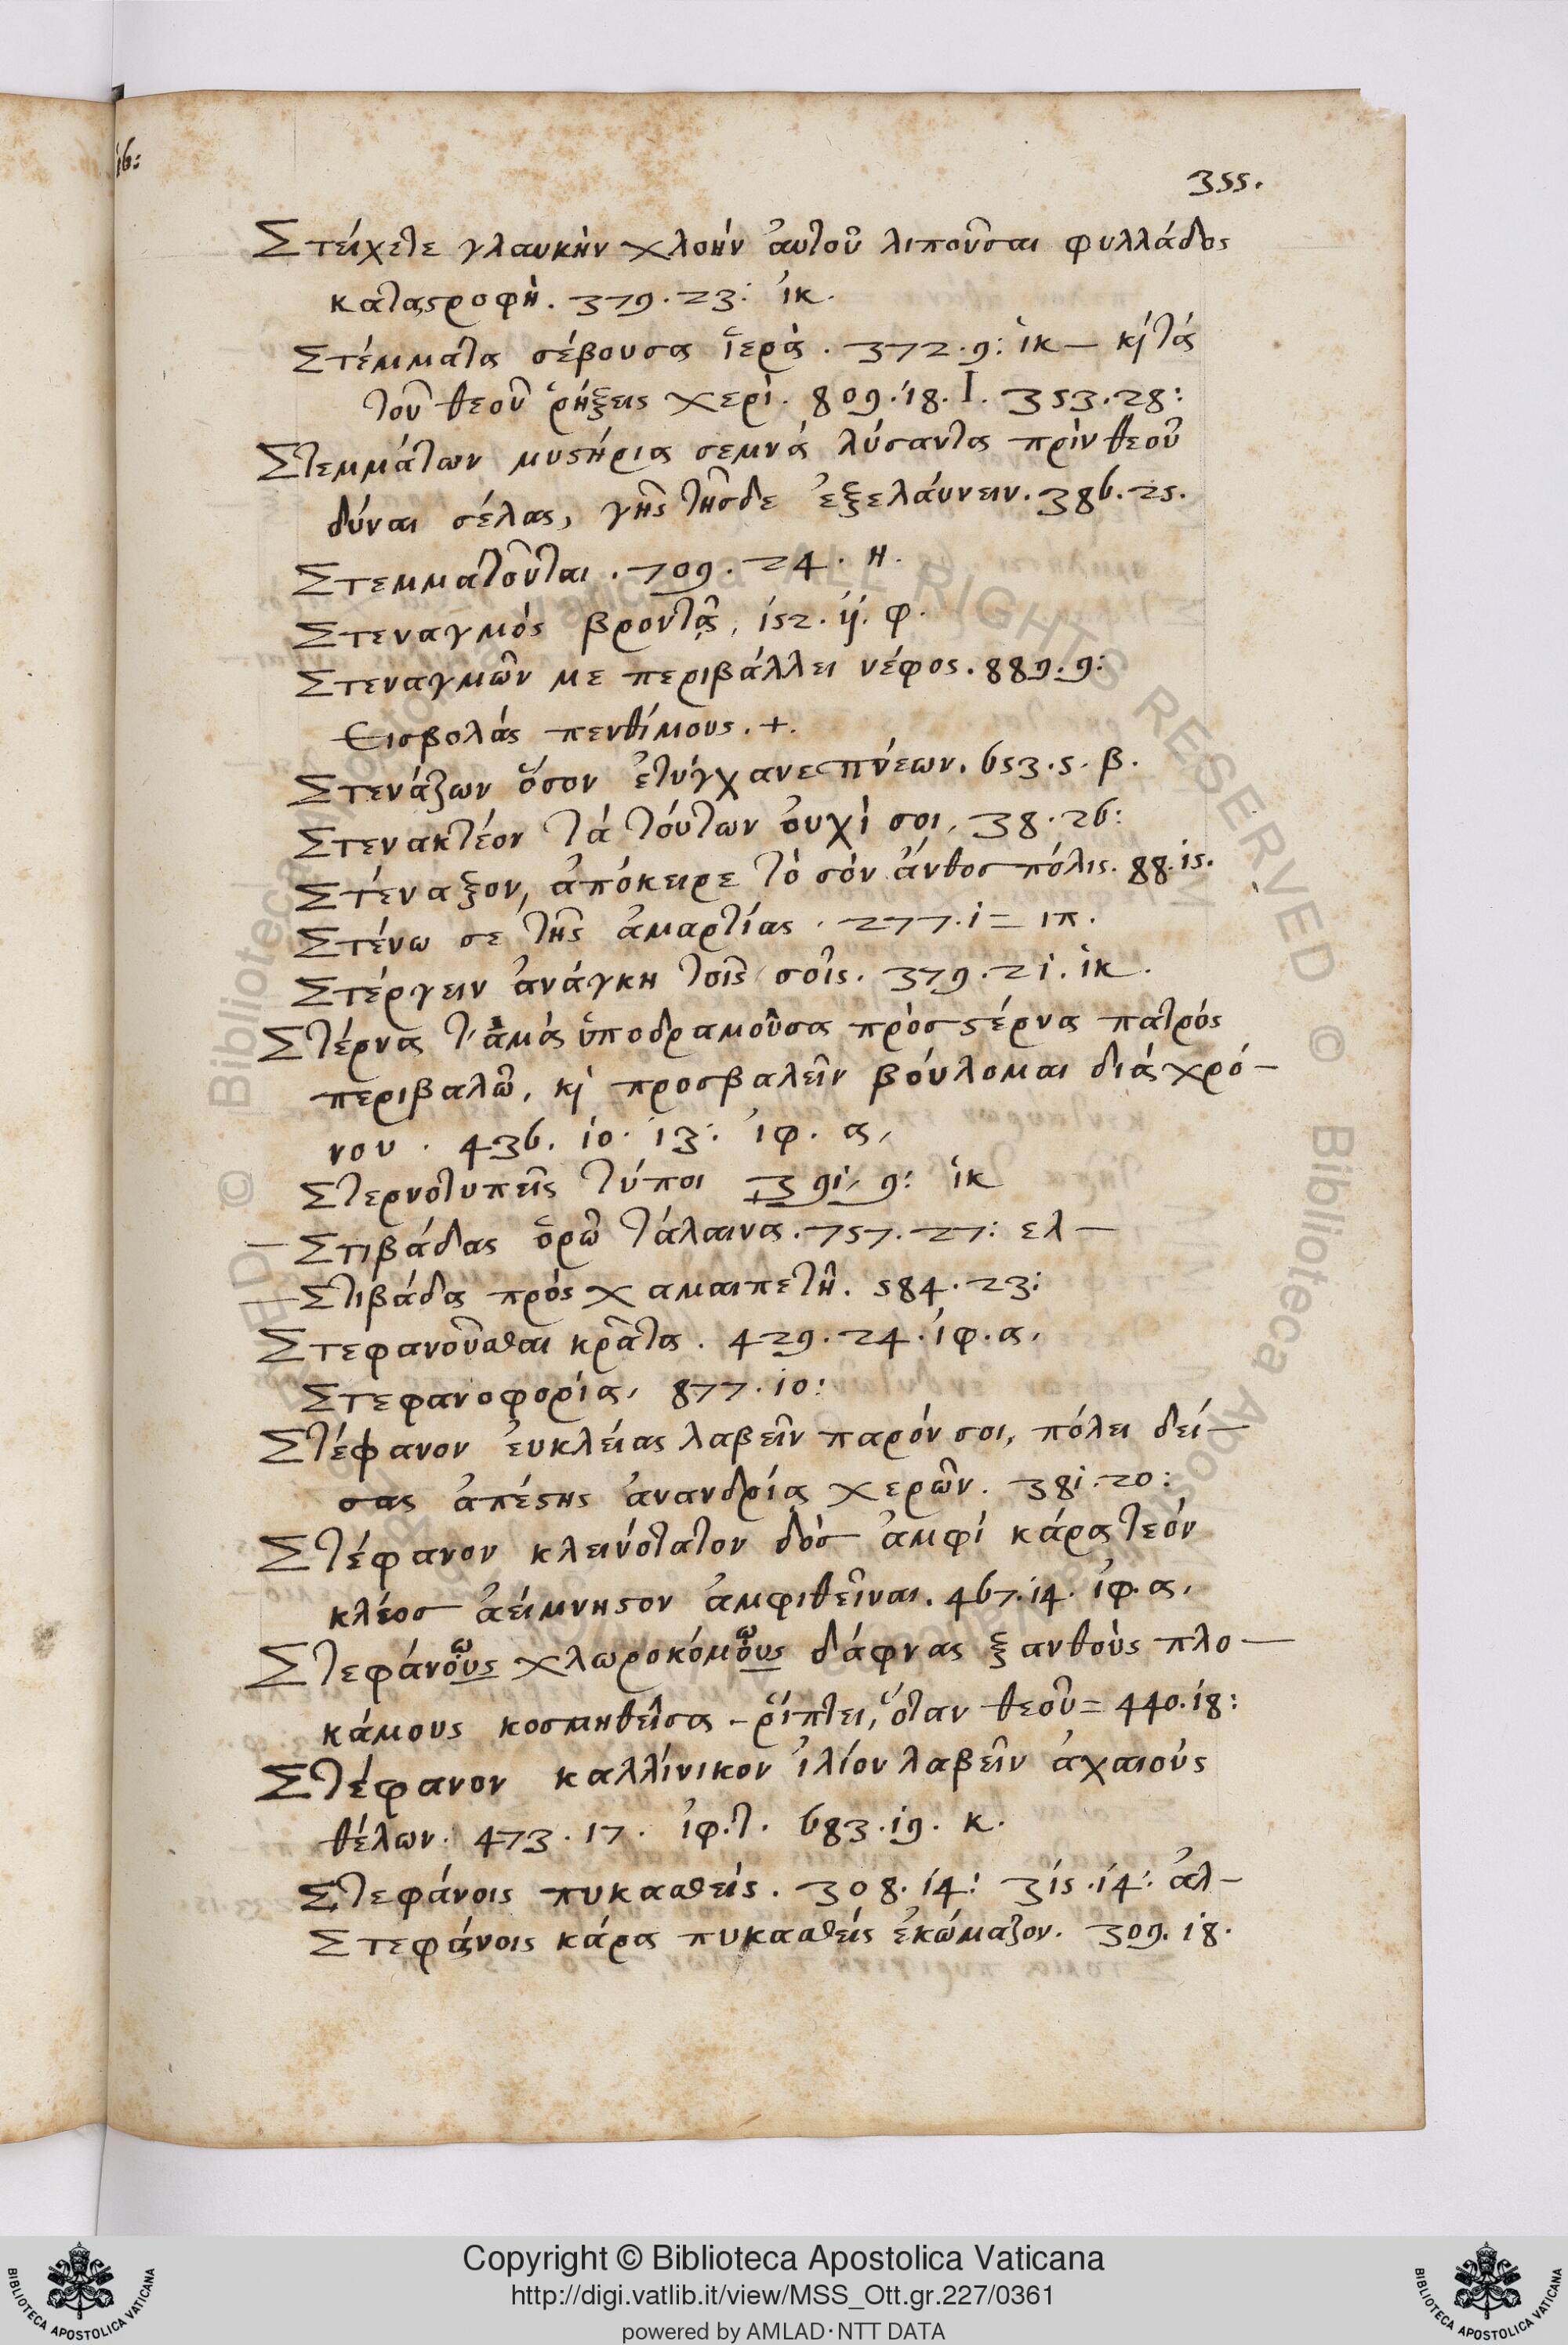 ib:
355.
Στείχετε γλαυκὴν χλοὴν ἀυτοῦ λιποῦσαι φυλλάδος
καταςροφὴ. 379. 23: ἱκ.
Στέμματα σέβουσα ἱερὰ. 372. 9: ἱκ — κỳ τὰ
τοῦ θεοῦ ῥήξεις χερὶ. 809. 18. I. 353. 28:
Στεμμάτων μυςήρια σεμνὰ λύσαντα πρὶν θεοῦ
δύναι σέλας, γῆς τῆσδε ἐξελάυνειν. 386. 25.
Στεμματοῦται. 709. 24. η.
Στεναγμός βροντᾶς, 152. 11. φ.
Στεναγμῶν με περιβάλλει νέφος. 889. 9:
Εισβολάς πενθίμους. +.
Στενάζων ὅσον ἐτύγχανε πνέων. 653. 5. β.
Στενακτέον τά τόυτων ὀυχὶ σοι, 38. 26:
Στέναξον, ἀπόκειρε τὸ σόν ἄνθος πόλις. 88. 15.
Στένω σε τῆς ἁμαρτίας. 277. 1 = ιπ.
Στέργειν ἀνάγκη τοῖς σοῖς. 379. 21. ἱκ.
Στέρνα τ' ἀμὰ ὑποδραμοῦσα πρὸς ςέρνα πατρός
περιβαλῶ, κỳ προσβαλεῖν βόυλομαι διά χρό-
νου. 436. 10. 13: ἰφ. α,
Στερνοτυπεῖς τύποι 391, 9: ἱκ
— Στιβάδας ὁρῶ τάλαινα. 757. 27: ελ —
— Στιβάδα πρός χαμαιπετῆ. 584. 23:
Στεφανοῦσθαι κρᾶτα. 429. 24. ἰφ. α,
Στεφανοφορία, 877. 10:
Στέφανον ἐυκλείας λαβεῖν παρόν σοι, πόλει δεί-
σας ἀπέςης ἀνανδρία χερῶν. 381. 20:
Στέφανον κλεινότατον δός ἀμφί κάρα τεόν
κλέος ἀείμνηςον ἀμφιθεῖναι. 467. 14. ἰφ. α,
Στεφάνους χλωροκόμους δάφνας ξανθοὺς πλο-
κάμους κοσμηθεῖσα - ῥίπτει, ὅταν θεοῦ = 440. 18:
Στέφανον καλλίνικον ἰλίου λαβεῖν ἀχαιούς
θέλων. 473. 17. ἰφ. τ. 683. 19. κ.
Στεφάνοις πυκασθείς. 308. 14: 315. 14: ἀλ-
Στεφάνοις κάρα πυκασθείς ἐκώμαζον. 309. 18.
Copyright © Biblioteca Apostolica Vaticana
http://digi.vatlib.it/view/MSS_Ott.gr.227/0361
powered by AMLAD·NTT DATA
BIBLIOTECA APOSTOLICA VATICANA
BIBLIOTECA APOSTOLICA VATICANA